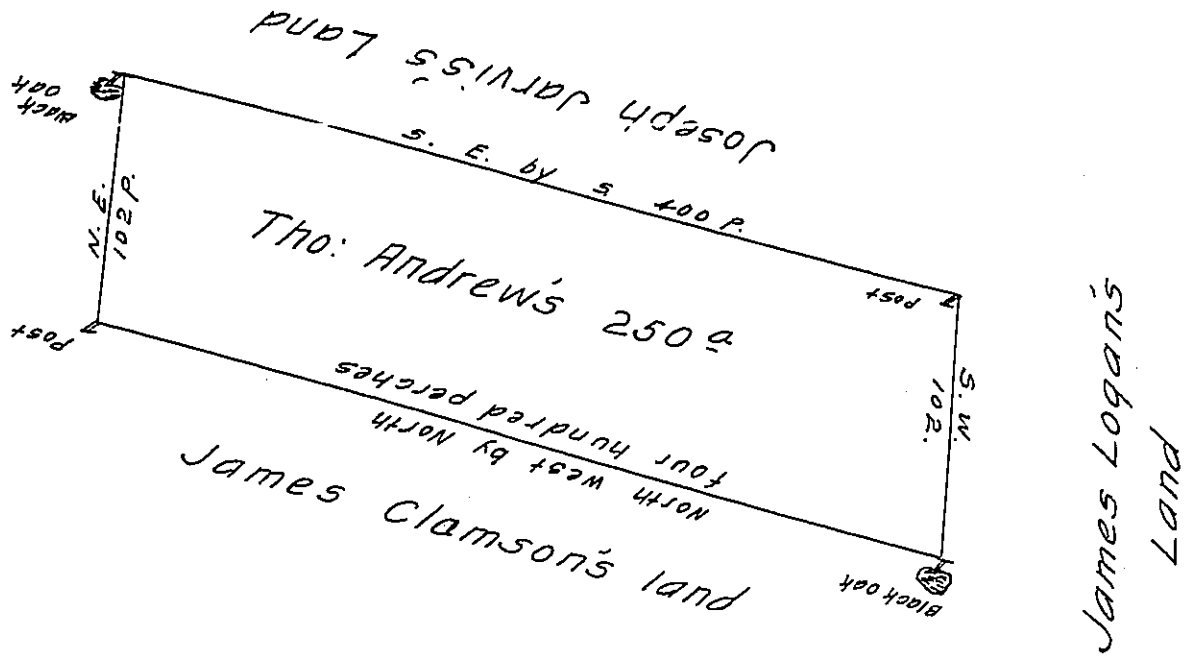 Joseph Jarvis's Land
Black
oak
S. E. by S. 400 P.
N. E.
102 P.
Tho: Andrew's 250 a
Post
Post
S. W.
102.
four hundred perches
North west by North
James Clamson's land
Black oak
James Logan's
Land